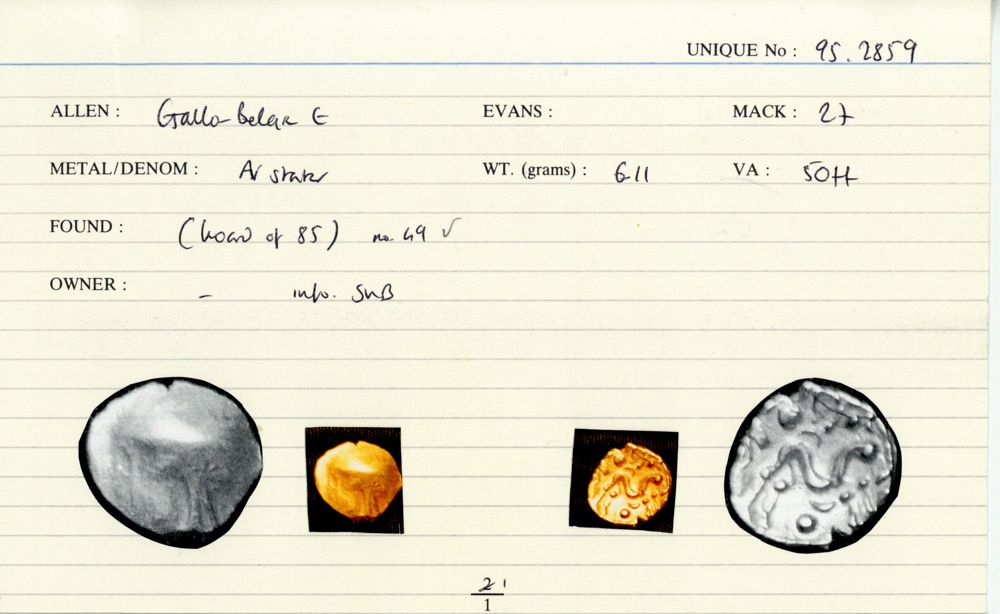 UNIQUE No : 95.2859
ALLEN : Gallo-Belgic E EVANS : MACK : 27
METAL/DENOM : AV stater WT. (grams) : 6.11 VA : 50++
FOUND : (hoard of 85) no. 49 ✓
OWNER : – info. SNB
2 1
1